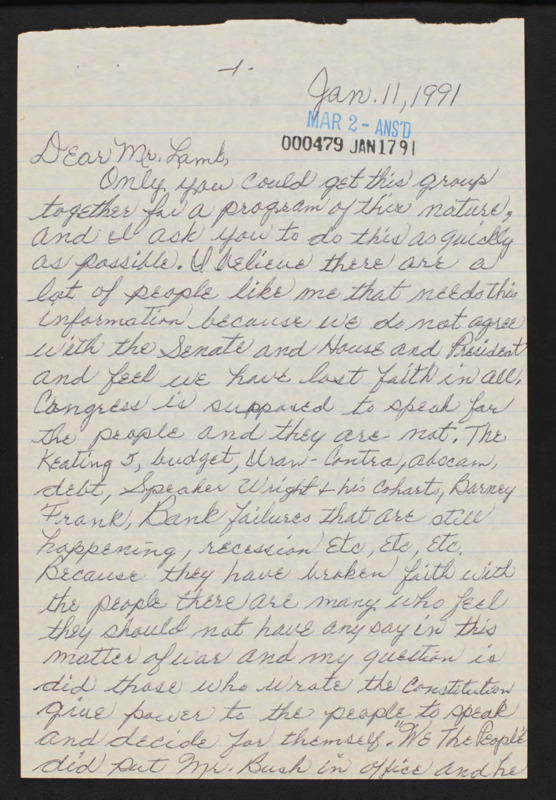 -1-
Jan. 11, 1991
MAR 2 - ANS'D
000479 JAN 17 91
Dear Mr. Lamb,
Only you could get this group
together for a program of this nature,
and I ask you to do this as quickly
as possible. I believe there are a
lot of people like me that needs this
information because we do not agree
with the Senate and House and President
and feel we have lost faith in all.
Congress is supposed to speak for
the people and they are not. The
Keating 5, budget, Iran-Contra, abscam,
debt, Speaker Wright & his coharts, Barney
Frank, Bank failures that are still
happening, recession etc, etc, etc.
Because they have broken faith with
the people there are many who feel
they should not have any say in this
matter of war and my question is
did those who wrote the Constitution
give power to the people to speak
and decide for themself. "We The People"
did put Mr. Bush in office and he